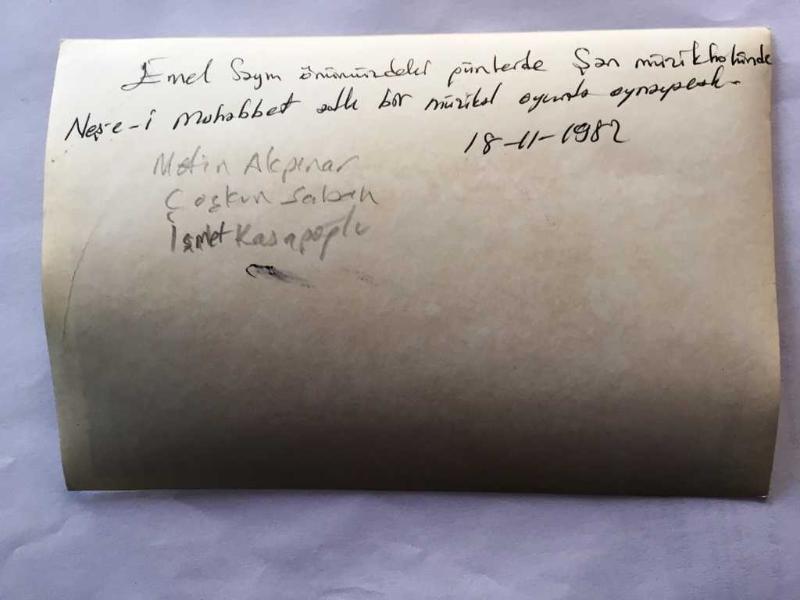 Emel Sayın önümüzdeki günlerde Şan müzikholünde
Neş-e-i Muhabbet adlı bir müzikal oyunda oynayacak.
18-11-1982
Metin Akpınar
Coşkun Sabah
İsmet Kasapoğlu